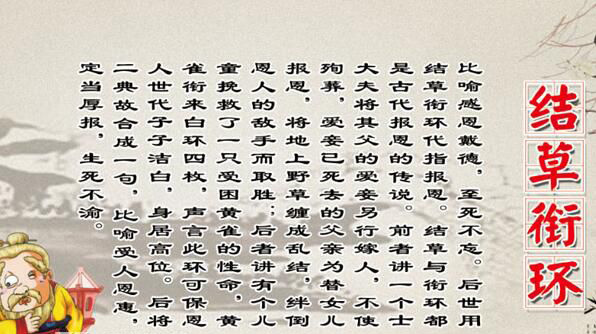 结草衔环
比喻感恩戴德，至死不忘。后世用
结草衔环代指报恩。结草与衔环都
是古代报恩的传说。前者讲一个士
大夫将其父的爱妾另行嫁人，不使
殉葬，爱妾已死去的父亲为替女儿
报恩，将地上野草缠成乱结，绊倒
恩人的敌手而取胜；后者讲有个儿
童挽救了一只受困黄雀的性命，黄
雀衔来白环四枚，声言此环可保恩
人世代子子洁白，身居高位。后将
二典故合成一句，比喻受人恩惠，
定当厚报，生死不渝。